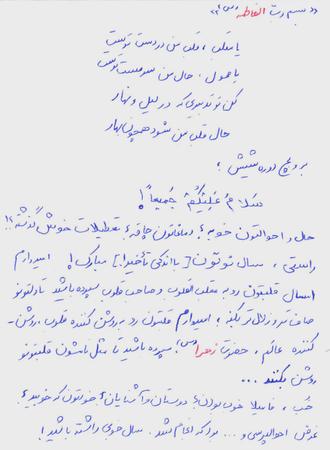 « بسم ربّ الفاطمه (س) »
یا مقلب، قلب من در دست توست
یا محول، حال من سرمست توست
کن تو تدبیری که در لیل و نهار
حال قلب من شود همچون بهار
بر و بچ دوره شیش ؛
سَلامٌ عَلَیْکُمْ جَمیعاً !
حال و احوالتون خوبه؟ دماغاتون چاقه؟ تعطیلات خوش گذشته؟!
راستی، سال نوتون [با اندکی تأخیر!] مبارک! امیدوارم
امسال قلبتون رو به مقلب القلوب و صاحب قلوب سپرده باشید تا دلتونو
صاف تر و زلال تر بکنه؛ امیدوارم قلبتون رو به روشن کننده قلوب، روشن-
کننده عالم، حضرت زهرا (س) سپرده باشید تا مثل نامشون قلبتونو
روشن بکنند ...
خُب، فامیلا خوب بودن؟ دوستان و آشنایان؟ خودتون که خوبید؟
غرض احوالپرسی و ... بود که انجام شد. سال خوبی داشته باشید!